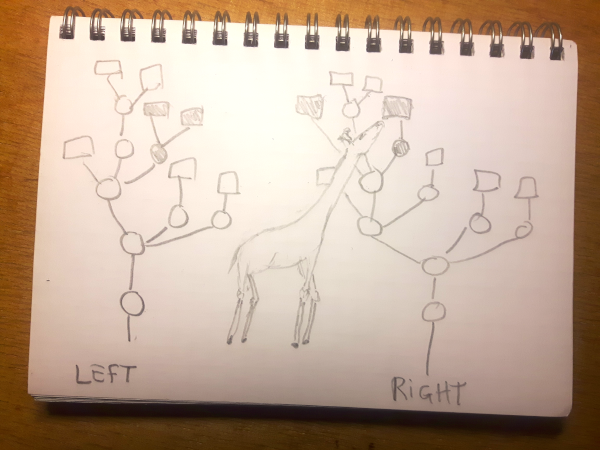 LEFT
RiGHT